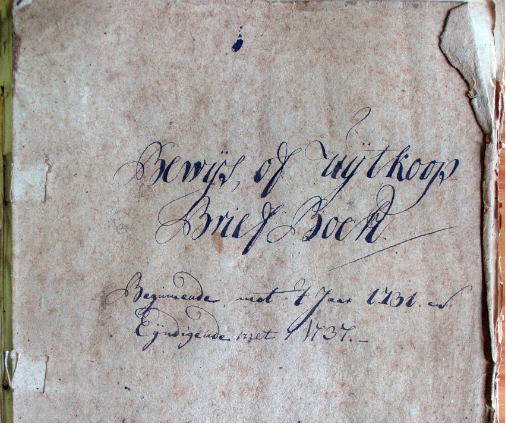 Bewÿs, of Uÿtkoop
Brief Boek.
Beginnende met 't Jaar 1731. en
Eÿndigende met 1737.